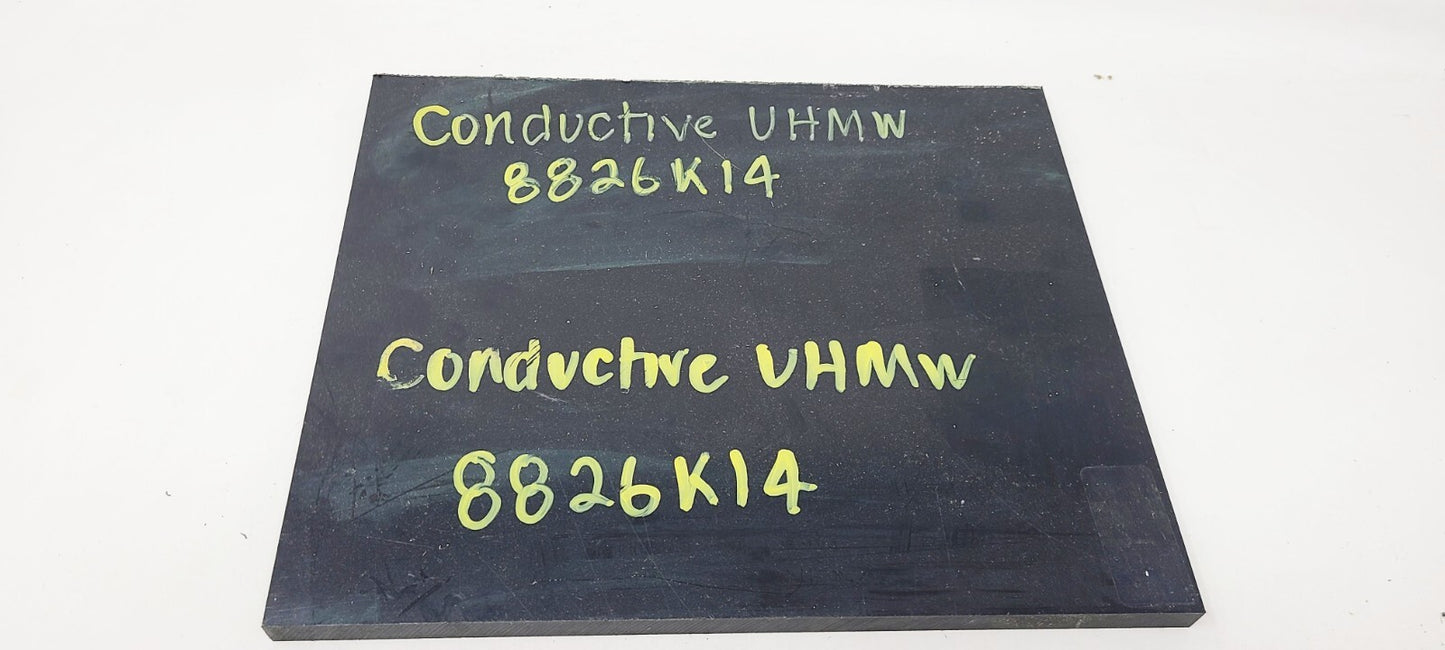 Conductive UHMW
8826K14
Conductive UHMW
8826K14